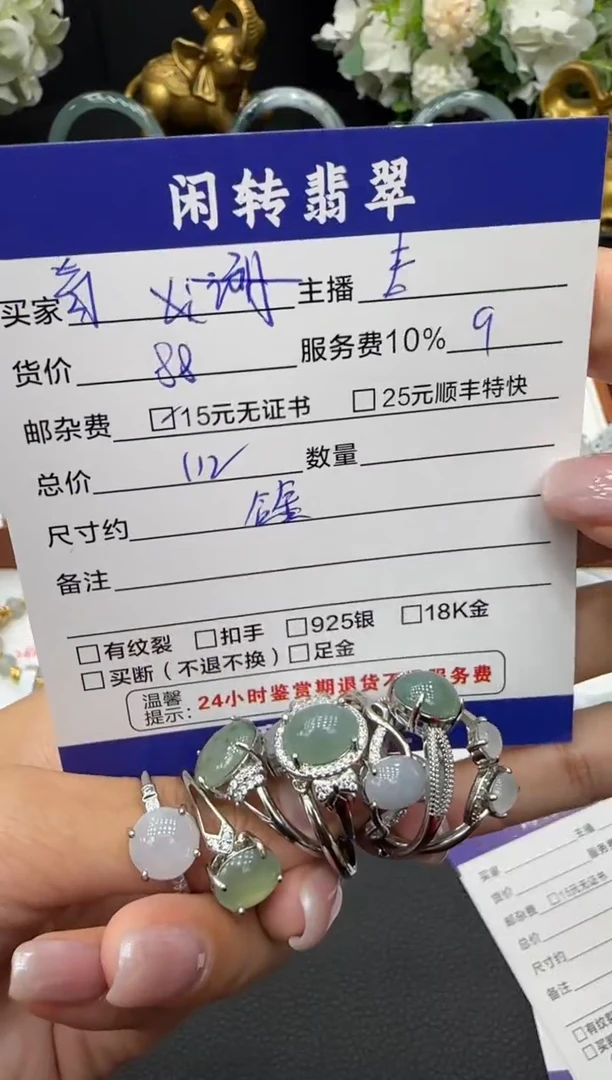 闲转翡翠
买家 主播
货价 88 服务费10% 9
邮杂费 ☑15元无证书 □25元顺丰特快
总价 112 数量
尺寸约 合金
备注
□有纹裂 □扣手 □925银 □18K金
□买断（不退不换）□足金
温馨提示：24小时鉴赏期退货不 服务费
买家 主播
货价 服务
邮杂费 □15元无证书
总价
尺寸约
备注
□有纹裂
□买